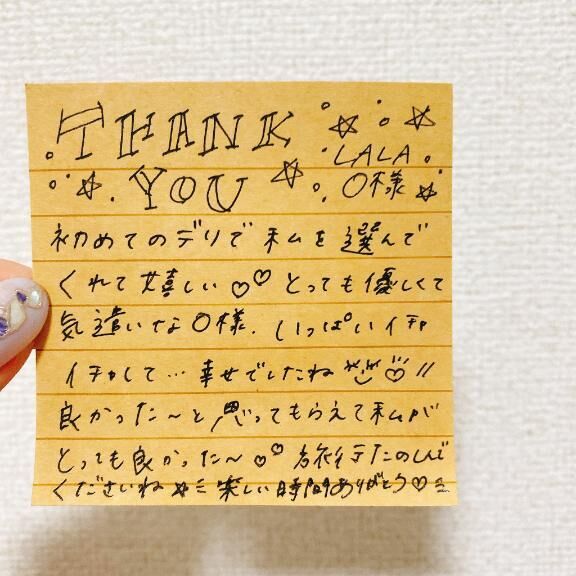 THANK
LALA
YOU O様
初めてのデリで私を選んで
くれて嬉しい♡♡とっても優しくて
気遣いなO様. いっぱいイチャ
イチャして… 幸せでしたね ♡〃
良かった〜と思ってもらえて私が
とっても良かった〜♡♡ 旅行たのしんで
くださいね☆ミ楽しい時間ありがとう♡ミ